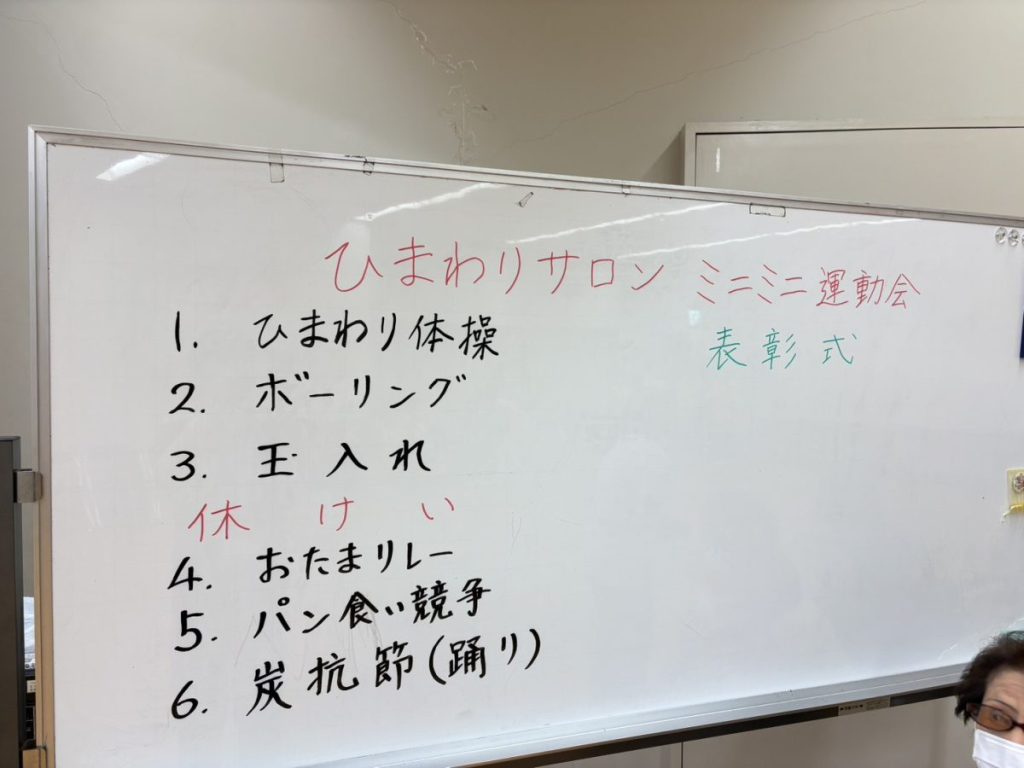 ひまわりサロン ミニミニ運動会
表彰式
1. ひまわり体操
2. ボーリング
3. 玉入れ
休けい
4. おたまリレー
5. パン食い競争
6. 炭抗節(踊り)